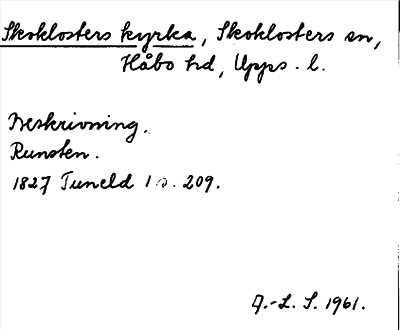 Skoklosters kyrka, Skoklosters sn,
Håbo hd, Upps. l.
Beskrivning.
Runsten.
1827 Tuneld 1 s. 209.
A.-L. S. 1961.